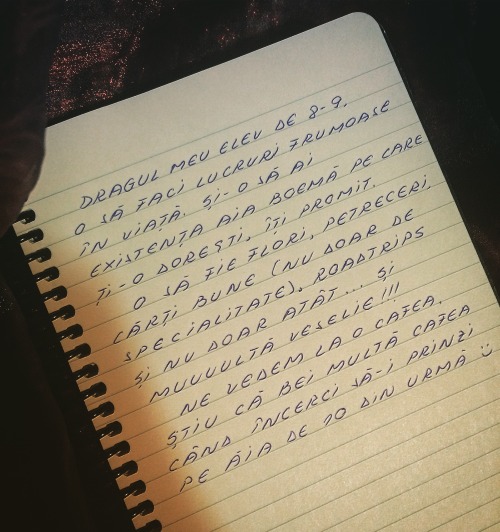 DRAGUL MEU ELEV DE 8-9.
O SĂ FACI LUCRURI FRUMOASE
ÎN VIAȚĂ. ȘI-O SĂ AI
EXISTENȚA AIA BOEMĂ PE CARE
ȚI-O DOREȘTI, ÎȚI PROMIT.
O SĂ FIE FLORI, PETRECERI,
CĂRȚI BUNE (NU DOAR DE
SPECIALITATE), ROADTRIPS
ȘI NU DOAR ATÂT... ȘI
MUUUULTĂ VESELIE!!!
NE VEDEM LA O CAFEA.
ȘTIU CĂ BEI MULTĂ CAFEA
CÂND ÎNCERCI SĂ-I PRINZI
PE ĂIA DE 10 DIN URMĂ Ü